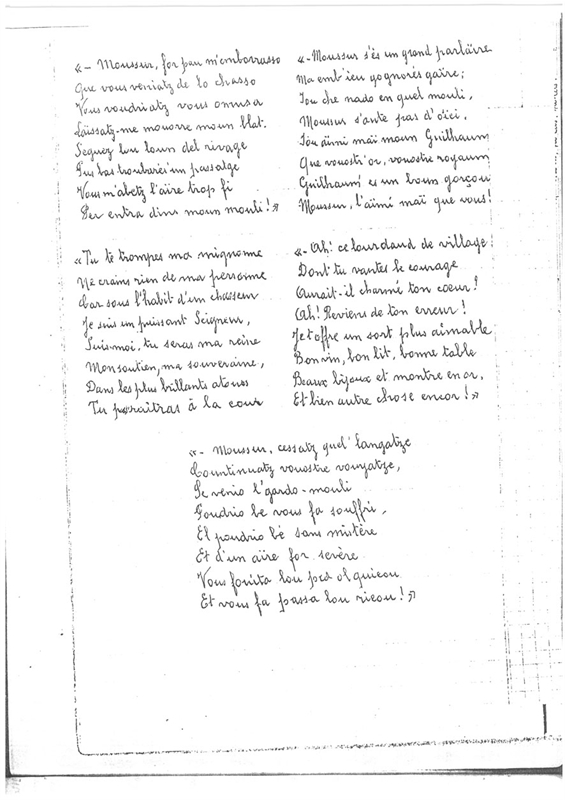 «- Moussur, for pau m'emborrasso
Que vous veniatz de lo chasso
Vous voudriatz vous omusa
Laissatz-me mouorre moun blat.
Seguez lou loun del rivage
Pus bas troubares un passatge
Vous m'abetz l'aïre trop fi
Per entra dins moun mouli!»
«Tu te trompes ma mignonne
Ne crains rien de ma personne
Car sous l'habit d'un chasseur
Je suis un puissant Seigneur,
Suis-moi, tu seras ma reine
Mon soutien, ma souveraine,
Dans les plus brillants atours
Tu paraîtras à la cour
«-Moussur s'és un grand parlaïre
Ma emb'ieu gognorés gaïre;
Iou che nado en quel mouli,
Moussur s'aute pas d'oïci,
Iou aïmi maï moun Guilhaum
Que vouostr'or, vouostre royaum
Guilhaum' es un boun garçou
Moussur, l'aïmi maï que vous!
«-Ah! ce lourdaud de village!
Dont tu vantes le courage
Aurait-il charmé ton coeur!
Ah! Reviens de ton erreur!
Je t'offre un sort plus aimable
Bon vin, bon lit, bonne table
Beaux bijoux et montre en or,
Et bien autre chose encor!»
«- Moussur, cessatz quel' langatze
Countinuatz vouostre vouyatze,
Se venio l'gardo-mouli
Poudrio be vous fa souffri,
El poudrio bé sans mistère
Et d'un aïre for sevère
Vous fouita lou ped ol quieou
Et vous fa passa lou rieou!»